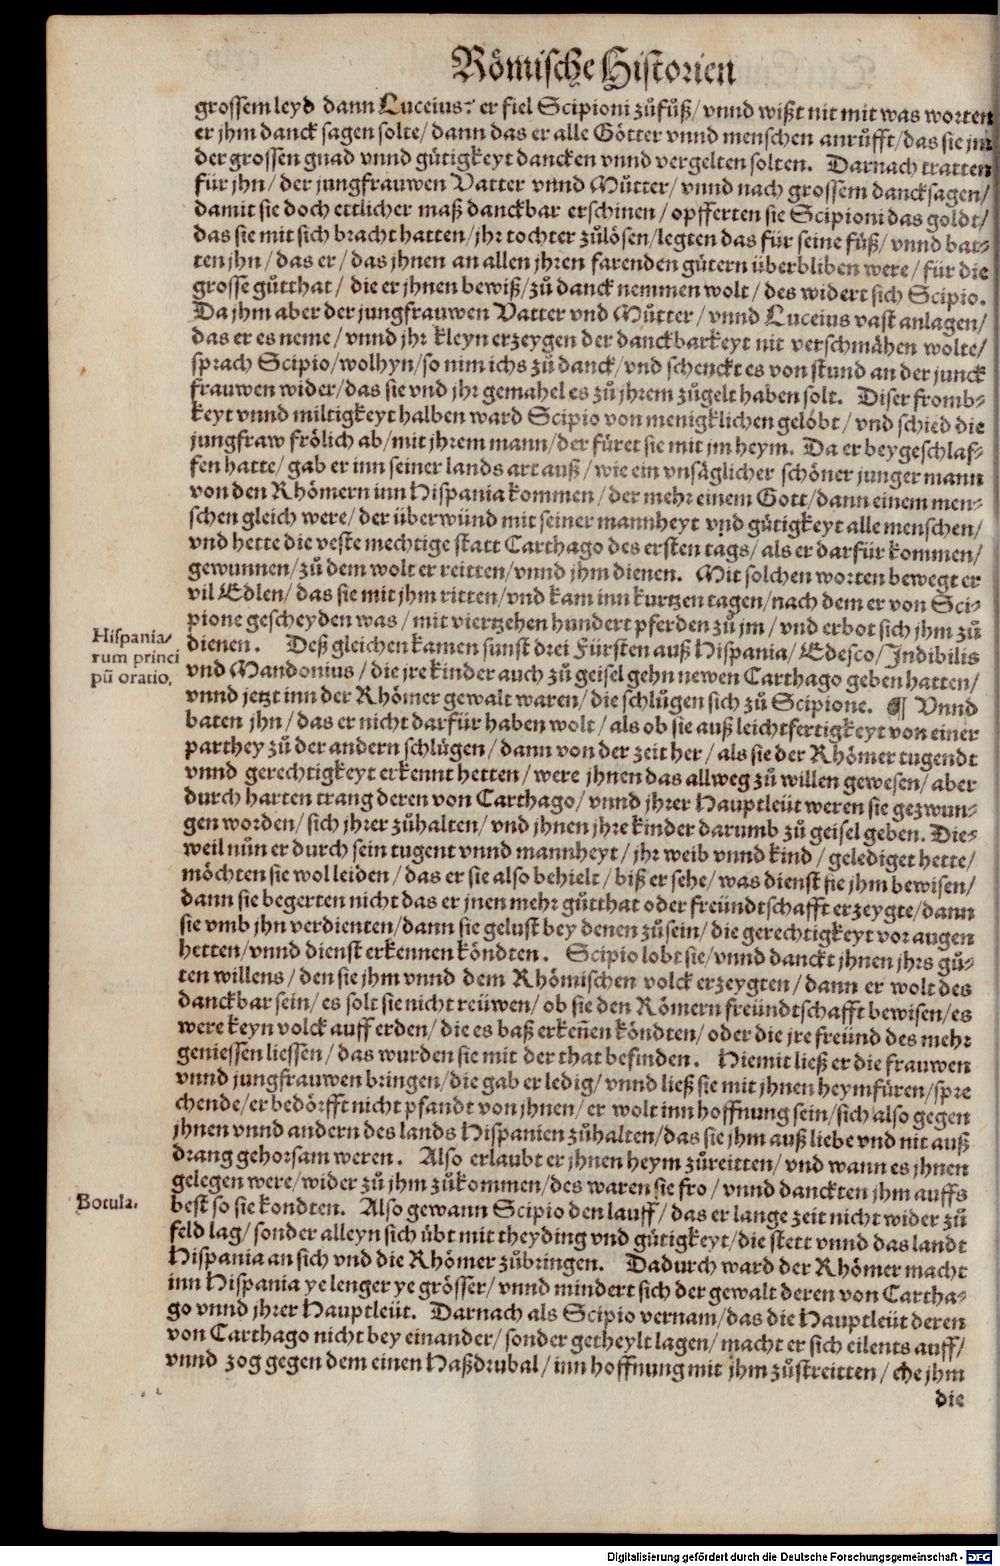 Römische Historien
grossem leyd dann Luceius: er fiel Scipioni zůfůß/ vnnd wißt nit mit was worten
er jhm danck sagen solte/ dann das er alle Götter vnnd menschen anrůfft/ das sie jm
der grossen gnad vnnd gütigkeyt dancken vnnd vergelten solten. Darnach tratten
für jhn/ der jungfrauwen Vatter vnnd Můtter/ vnnd nach grossem dancksagen/
damit sie doch ettlicher maß danckbar erschinen/ opfferten sie Scipioni das goldt/
das sie mit sich bracht hatten/ jhr tochter zůlösen/ legten das für seine füß/ vnnd bat-
ten jhn/ das er/ das jhnen an allen jhren farenden gütern überbliben were/ für die
grosse gůtthat/ die er jhnen bewiß/ zů danck nemmen wolt/ des widert sich Scipio.
Da jhm aber der jungfrauwen Vatter vnd Můtter/ vnnd Luceius vast anlagen/
das er es neme/ vnnd jhr kleyn erzeygen der danckbarkeyt nit verschmähen wolte/
sprach Scipio/ wolhyn/ so nim ichs zů danck/ vnd schenckt es von stund an der junck
frauwen wider/ das sie vnd jhr gemahel es zů jhrem zůgelt haben solt. Diser fromb-
keyt vnnd miltigkeyt halben ward Scipio von menigklichen gelöbt/ vnd schied die
jungfraw frölich ab/ mit jhrem mann/ der füret sie mit jm heym. Da er beygeschlaf-
fen hatte/ gab er inn seiner lands art auß/ wie ein vnsäglicher schöner junger mann
von den Rhömern inn Hispania kommen/ der mehr einem Gott/ dann einem men-
schen gleich were/ der überwünd mit seiner mannheyt vnd gütigkeyt alle menschen/
vnd hette die veste mechtige statt Carthago des ersten tags/ als er darfür kommen/
gewunnen/ zů dem wolt er reitten/ vnnd jhm dienen. Mit solchen worten bewegt er
vil Edlen/ das sie mit jhm ritten/ vnd kam inn kurtzen tagen/ nach dem er von Sci-
pione gescheyden was/ mit viertzehen hundert pferden zů jm/ vnd erbot sich jhm zů
dienen. Deß gleichen kamen sunst drei Fürsten auß Hispania/ Edesco/ Indibilis
Hispania/
rum princi
pū oratio.
vnd Mandonius/ die jre kinder auch zů geisel gehn newen Carthago geben hatten/
vnnd jetzt inn der Rhömer gewalt waren/ die schlůgen sich zů Scipione. ¶ Vnnd
baten jhn/ das er nicht darfür haben wolt/ als ob sie auß leichtfertigkeyt von einer
parthey zů der andern schlůgen/ dann von der zeit her/ als sie der Rhömer tugendt
vnnd gerechtigkeyt erkennt hetten/ were jhnen das allweg zů willen gewesen/ aber
durch harten trang deren von Carthago/ vnnd jhrer Hauptleüt weren sie gezwun-
gen worden/ sich jhrer zůhalten/ vnd jhnen jhre kinder darumb zů geisel geben. Die-
weil nůn er durch sein tugent vnnd mannheyt/ jhr weib vnnd kind/ gelediget hette/
möchten sie wol leiden/ das er sie also behielt/ biß er sehe/ was dienst sie jhm bewisen/
dann sie begerten nicht das er jnen mehr gůtthat oder freündtschafft erzeygte/ dann
sie vmb jhn verdienten/ dann sie gelust bey denen zůsein/ die gerechtigkeyt vor augen
hetten/ vnnd dienst erkennen köndten. Scipio lobt sie/ vnnd danckt jhnen jhrs gů-
ten willens/ den sie jhm vnnd dem Rhömischen volck erzeygten/ dann er wolt des
danckbar sein/ es solt sie nicht reüwen/ ob sie den Römern freündtschafft bewisen/ es
were keyn volck auff erden/ die es baß erkeñen köndten/ oder die jre freünd des mehr
geniessen liessen/ das wurden sie mit der that befinden. Hiemit ließ er die frauwen
vnnd jungfrauwen bringen/ die gab er ledig/ vnnd ließ sie mit jhnen heymfüren/ spre
chende/ er bedörfft nicht pfandt von jhnen/ er wolt inn hoffnung sein/ sich also gegen
jhnen vnnd andern des lands Hispanien zůhalten/ das sie jhm auß liebe vnd nit auß
drang gehorsam weren. Also erlaubt er jhnen heym zůreitten/ vnd wann es jhnen
gelegen were/ wider zů jhm zůkommen/ des waren sie fro/ vnnd danckten jhm auffs
Botula.
best so sie kondten. Also gewann Scipio den lauff/ das er lange zeit nicht wider zů
feld lag/ sonder alleyn sich übt mit theyding vnd gütigkeyt/ die stett vnnd das landt
Hispania an sich vnd die Rhömer zůbringen. Dadurch ward der Rhömer macht
inn Hispania ye lenger ye grösser/ vnnd mindert sich der gewalt deren von Cartha-
go vnnd jhrer Hauptleüt. Darnach als Scipio vernam/ das die Hauptleüt deren
von Carthago nicht bey einander/ sonder getheylt lagen/ macht er sich eilents auff/
vnnd zog gegen dem einen Haßdrubal/ inn hoffnung mit jhm zůstreitten/ ehe jhm
die
Digitalisierung gefördert durch die Deutsche Forschungsgemeinschaft - DFG